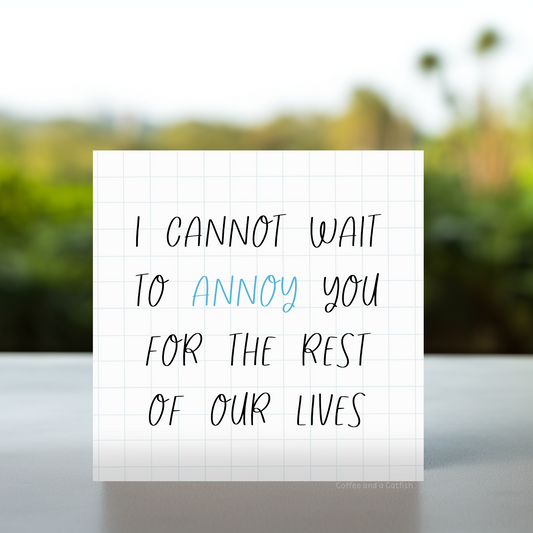 I CANNOT WAIT
TO ANNOY YOU
FOR THE REST
OF OUR LIVES
Coffee and a Catfish